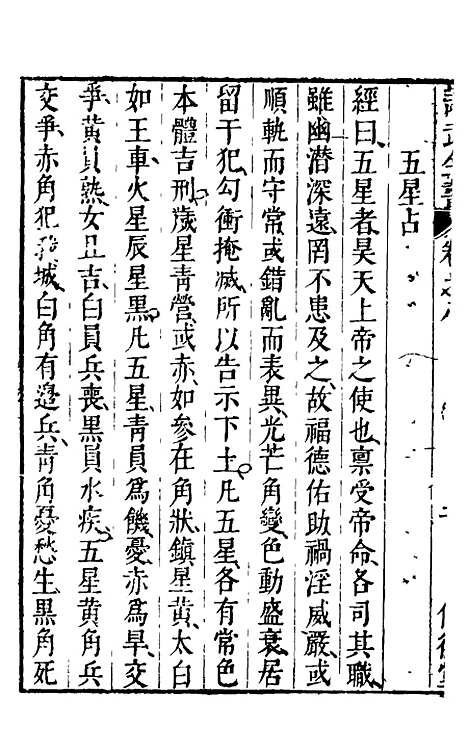 五星占
經曰五星者昊天上帝之使也禀受帝命各司其職
雖幽潛深遠罔不患及之故福德佑助禍淫威嚴或
順軌而守常或錯亂而表異光芒角變色動盛衰居
留于犯勾衝掩滅所以告示下土凡五星各有常色
本體吉刑歲星青營或赤如參在角狀鎮星黃太白
如王車火星辰星黑凡五星青員爲饑憂赤爲旱交
爭黃員熟女丑吉白員兵喪黑員水疾五星黄角兵
交爭赤角犯城白角有邉兵青角憂愁生黑角死